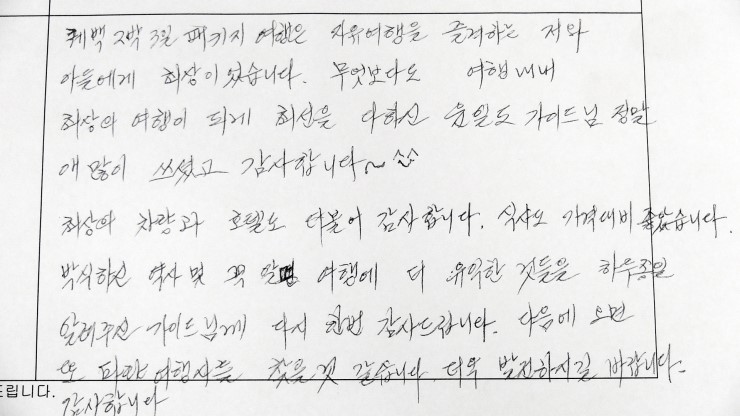 퀘백 2박 3일 패키지 여행은 자유여행을 즐겨하는 저와
아들에게 최상이었습니다. 무엇보다도 여행내내
최상의 여행이 되게 최선을 다하신 윤일도 가이드님 정말
애 많이 쓰셨고 감사합니다~ ^^
최상의 차량과 호텔도 더불어 감사합니다. 식사도 가격대비 좋았습니다.
박식하신 역사 및 꼭 알 여행에 더 유익한 것들을 하루종일
알려주신 가이드님께 다시 한번 감사드립니다. 다음에 오면
또 파란 여행사를 찾을것 같습니다. 더욱 발전하시길 바랍니다~
드립니다.
감사합니다